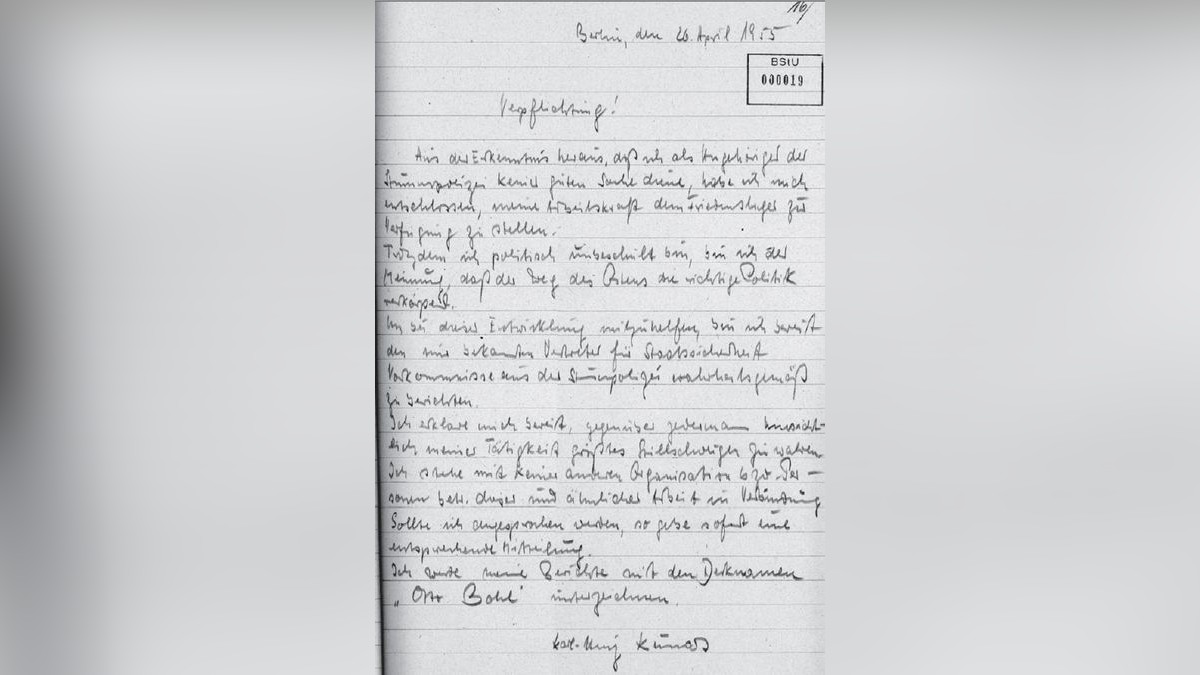 16/
Berlin, den 26. April 1955
BStU
000019
Verpflichtung!
Aus der Erkenntnis heraus, daß ich als Angehöriger der
Stummpolizei keiner guten Sache diene, habe ich mich
entschlossen, meine Arbeitskraft dem Friedenslager zur
Verfügung zu stellen.
Trotzdem ich politisch unbeschult bin, bin ich der
Meinung, daß der Weg des Ostens die richtige Politik
verkörpert.
Um bei dieser Entwicklung mitzuhelfen, bin ich bereit
den mir bekannten Vertreter für Staatssicherheit
Vorkommnisse aus der Stummpolizei wahrheitsgemäß
zu berichten.
Ich erkläre mich bereit, gegenüber jedermann hinsicht-
lich meiner Tätigkeit größtes Stillschweigen zu wahren
Ich stehe mit keiner anderen Organisation bzw. Per-
sonen betr. dieser und ähnlicher Arbeit in Verbindung
Sollte ich angesprochen werden, so gebe sofort eine
entsprechende Mitteilung.
Ich werde meine Berichte mit den Decknamen
„Otto Bohl" unterzeichnen.
Karl-Heinz Kurras